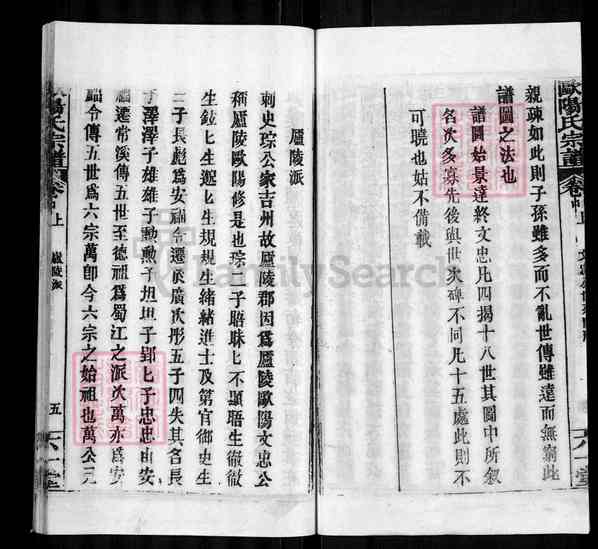 親疎如此則子孫雖多而不亂世傳雖遠而無窮此
譜圖之法也
譜圖始景達終文忠凡四揭十八世其圖中所叙
名次多寡先後與世次碑不同凡十五處此則不
可曉也姑不備載
歐陽氏宗
六一堂
廬陵派
刺史琮公家吉州故廬陵郡因爲廬陵歐陽文忠公
稱廬陵歐陽修是也琮
子晤昧七不顯晤生徹徹
生
七生邂七生規規生緒緒進士及第官御史生
子長彪爲安福令遷
廣次彤五子四失其名長
子澤澤子雄雄子勳勳子坦坦子郢七子忠忠由安
福遷常溪傳五世至德祖爲蜀江之派次萬亦爲安
福令傳五世爲六宗萬卽今六宗之始祖也萬公元
歐陽氏宗
上
廬陵派
五
六一堂
FamilySearch